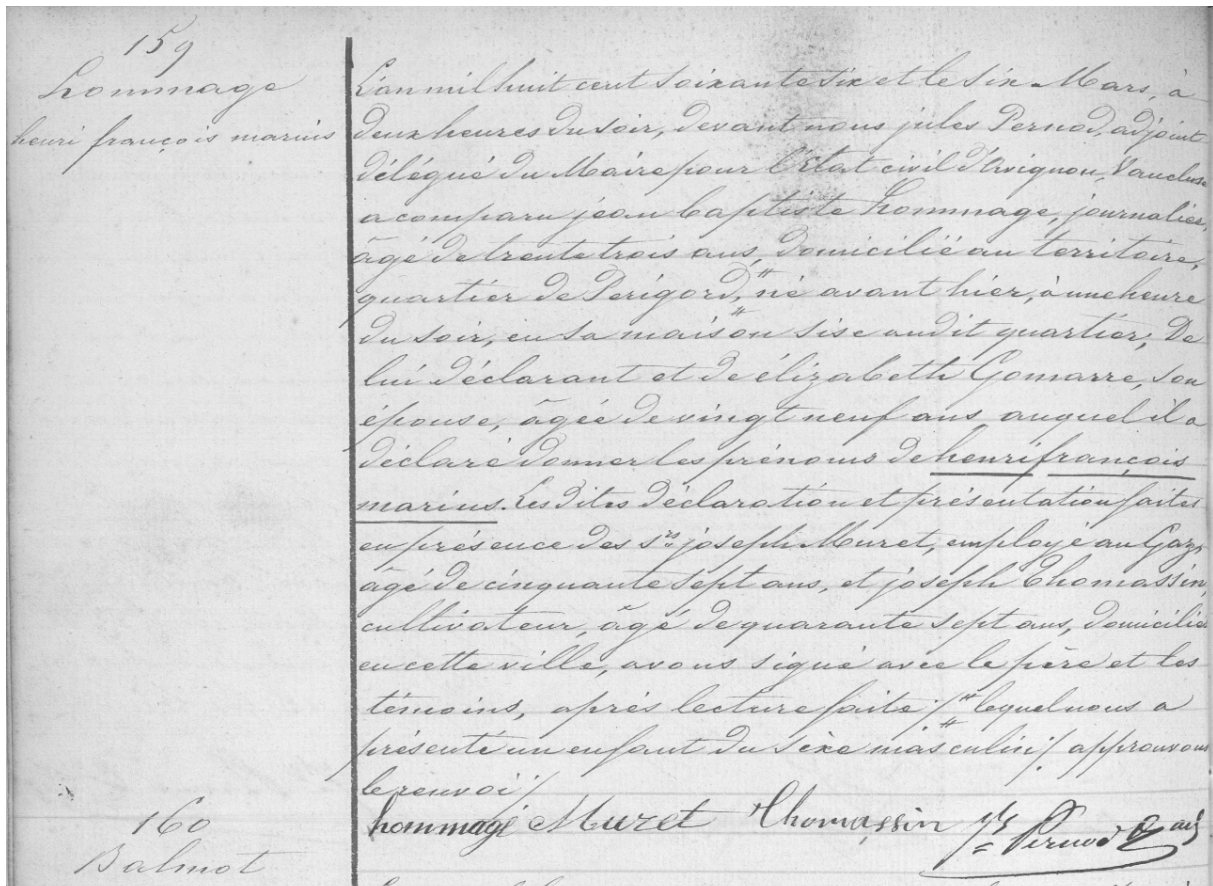 159
hommage
henri françois marius
L'an mil huit cent soixante six et le six Mars, à
deux heures du soir, devant nous jules Pernod, adjoint
délégué du Maire pour l'Etat civil d'Avignon, Vaucluse
a comparu jean baptiste hommage, journalier,
âgé de trente trois ans, domicilié au territoire,
quartier de Périgord, # né avant hier, à une heure
du soir, en sa maison sise audit quartier, De
lui déclarant et de élizabeth Gomarre, son
épouse, âgée de vingt neuf ans auquel il a
déclaré donner les prénoms de henri françois
marius. Les dites déclaration et présentation faites
en présence des srs joseph Muret, employé au Gaz,
âgé de cinquante sept ans, et joseph Thomassin,
cultivateur, âgé de quarante sept ans, domiciliés
en cette ville, avons signé avec le père et les
témoins, après lecture faite ./. # lequel nous a
présenté un enfant du sèxe masculin / approuvons
le renvoi /
hommage Muret Thomassin Jles Pernod adj
160
Balmot